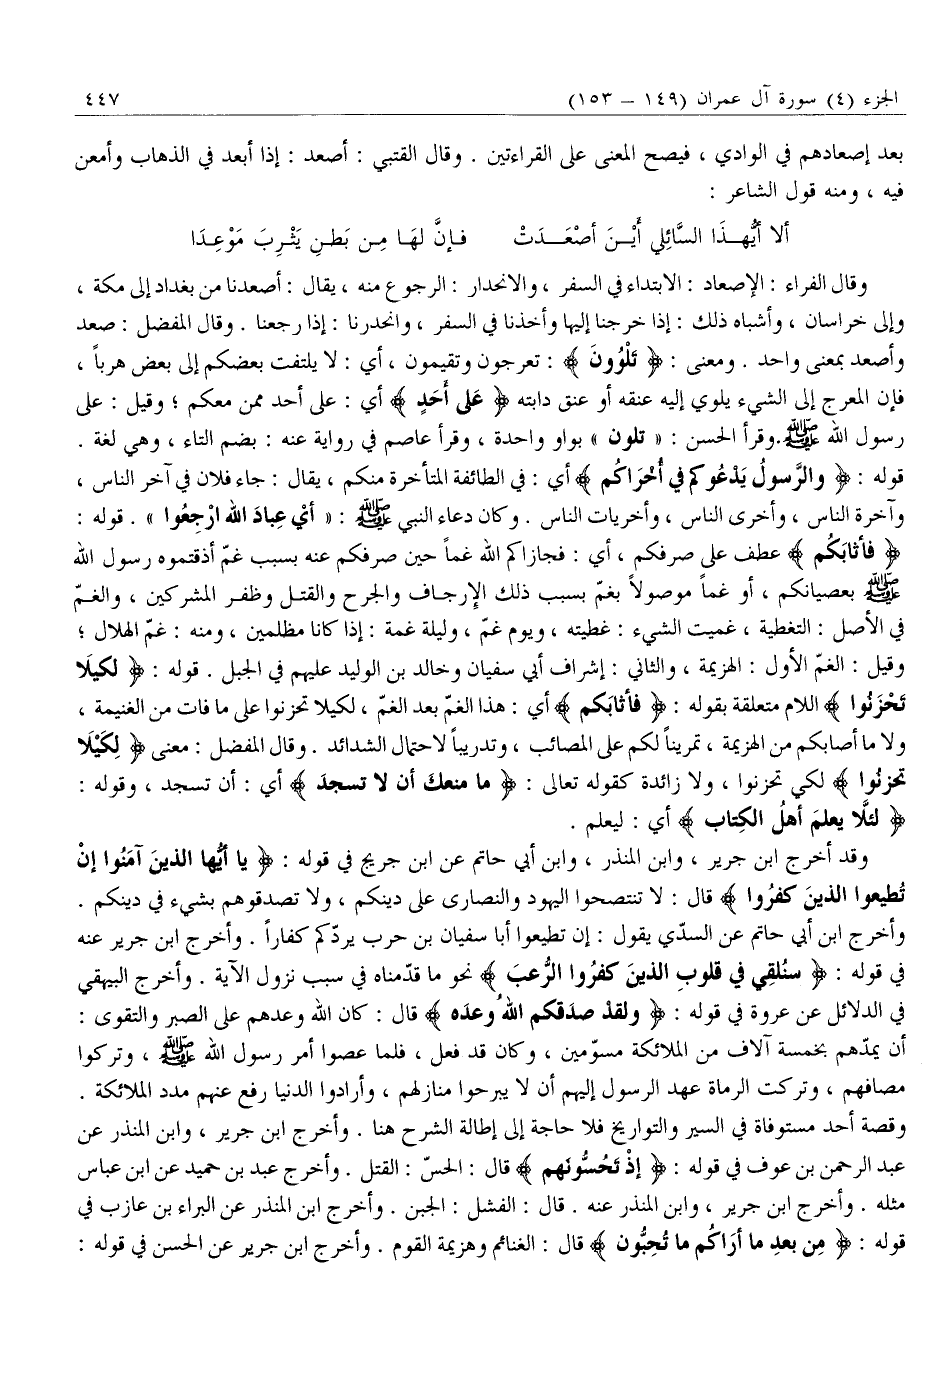 الجزء (٤) سورة آل عمران (١٤٩ – ١٥٣) ٤٤٧
بعد إصعادهم في الوادي ، فيصح المعنى على القراءتين . وقال القتبي : أصعد : إذا أبعد في الذهاب وأمعن
فيه ، ومنه قول الشاعر :
ألا أيُّهـذَا السَّائِلي أَيْـنَ أصْعَـدَتْ فـإنَّ لهَـا مِـن بَطـنِ يَثْـرِبَ مَوْعِـدَا
وقال الفراء : الإصعاد : الابتداء في السفر ، والانحدار : الرجوع منه ، يقال : أصعدنا من بغداد إلى مكة ،
وإلى خراسان ، وأشباه ذلك : إذا خرجنا إليها وأخذنا في السفر ، وانحدرنا : إذا رجعنا . وقال المفضل : صعد
وأصعد بمعنى واحد . ومعنى : ﴿ تَلْوُونَ ﴾ : تعرجون وتقيمون ، أي : لا يلتفت بعضكم إلى بعض هرباً ،
فإن المعرج إلى الشيء يلوي إليه عنقه أو عنق دابته ﴿ عَلى أَحَدٍ ﴾ أي : على أحد ممن معكم ؛ وقيل : على
رسول الله ﷺ.وقرأ الحسن : « تلون » بواو واحدة ، وقرأ عاصم في رواية عنه : بضم التاء ، وهي لغة .
قوله : ﴿ والرَّسولُ يَدْعُوكم في أُخْرَاكُم ﴾ أي : في الطائفة المتأخرة منكم ، يقال : جاء فلان في آخر الناس ،
وآخرة الناس ، وأخرى الناس ، وأخريات الناس . وكان دعاء النبي ﷺ : « أيْ عِبادَ الله ارْجِعُوا » . قوله :
﴿ فأثابَكُم ﴾ عطف على صرفكم ، أي : فجازاكم الله غماً حين صرفكم عنه بسبب غمّ أذقتموه رسول الله
ﷺ بعصيانكم ، أو غماً موصولاً بغمّ بسبب ذلك الإرجـاف والجرح والقتـل وظفـر المشركين ، والغـمّ
في الأصل : التغطية ، غميت الشيء : غطيته ، ويوم غمّ ، وليلة غمة : إذا كانا مظلمين ، ومنه : غمّ الهلال ؛
وقيل : الغمّ الأول : الهزيمة ، والثاني : إشراف أبي سفيان وخالد بن الوليد عليهم في الجبل . قوله : ﴿ لكيلَا
تَحْزَنُوا ﴾ اللام متعلقة بقوله : ﴿ فأثابَكم ﴾ أي : هذا الغمّ بعد الغمّ ، لكيلا تحزنوا على ما فات من الغنيمة ،
ولا ما أصابكم من الهزيمة ، تمريناً لكم على المصائب ، وتدريباً لاحتمال الشدائد . وقال المفضل : معنى ﴿ لِكَيْلَا
تحزنُوا ﴾ لكي تحزنوا ، ولا زائدة كقوله تعالى : ﴿ ما منعكَ أن لا تسجدَ ﴾ أي : أن تسجد ، وقوله :
﴿ لئلَّا يعلمَ أهلُ الكِتاب ﴾ أي : ليعلم .
وقد أخرج ابن جرير ، وابن المنذر ، وابن أبي حاتم عن ابن جريج في قوله : ﴿ يا أيُّها الذينَ آمَنُوا إنْ
تُطيعوا الذينَ كفرُوا ﴾ قال : لا تنتصحوا اليهود والنصارى على دينكم ، ولا تصدقوهم بشيء في دينكم .
وأخرج ابن أبي حاتم عن السدّي يقول : إن تطيعوا أبا سفيان بن حرب يردّكم كفاراً . وأخرج ابن جرير عنه
في قوله : ﴿ سنُلقِي في قلوبِ الذينَ كفرُوا الرُّعبَ ﴾ نحو ما قدّمناه في سبب نزول الآية . وأخرج البيهقي
في الدلائل عن عروة في قوله : ﴿ ولقدْ صدَقكم اللهُ وعدَه ﴾ قال : كان الله وعدهم على الصبر والتقوى :
أن يمدّهم بخمسة آلاف من الملائكة مسوّمين ، وكان قد فعل ، فلما عصوا أمر رسول الله ﷺ ، وتركوا
مصافهم ، وتركت الرماة عهد الرسول إليهم أن لا يبرحوا منازلهم ، وأرادوا الدنيا رفع عنهم مدد الملائكة .
وقصة أحد مستوفاة في السير والتواريخ فلا حاجة إلى إطالة الشرح هنا . وأخرج ابن جرير ، وابن المنذر عن
عبد الرحمن بن عوف في قوله : ﴿ إذْ تَحُسُّونَهم ﴾ قال : الحسّ : القتل . وأخرج عبد بن حميد عن ابن عباس
مثله . وأخرج ابن جرير ، وابن المنذر عنه . قال : الفشل : الجبن . وأخرج ابن المنذر عن البراء بن عازب في
قوله : ﴿ مِن بعدِ ما أرَاكُم ما تُحِبُّون ﴾ قال : الغنائم وهزيمة القوم . وأخرج ابن جرير عن الحسن في قوله :